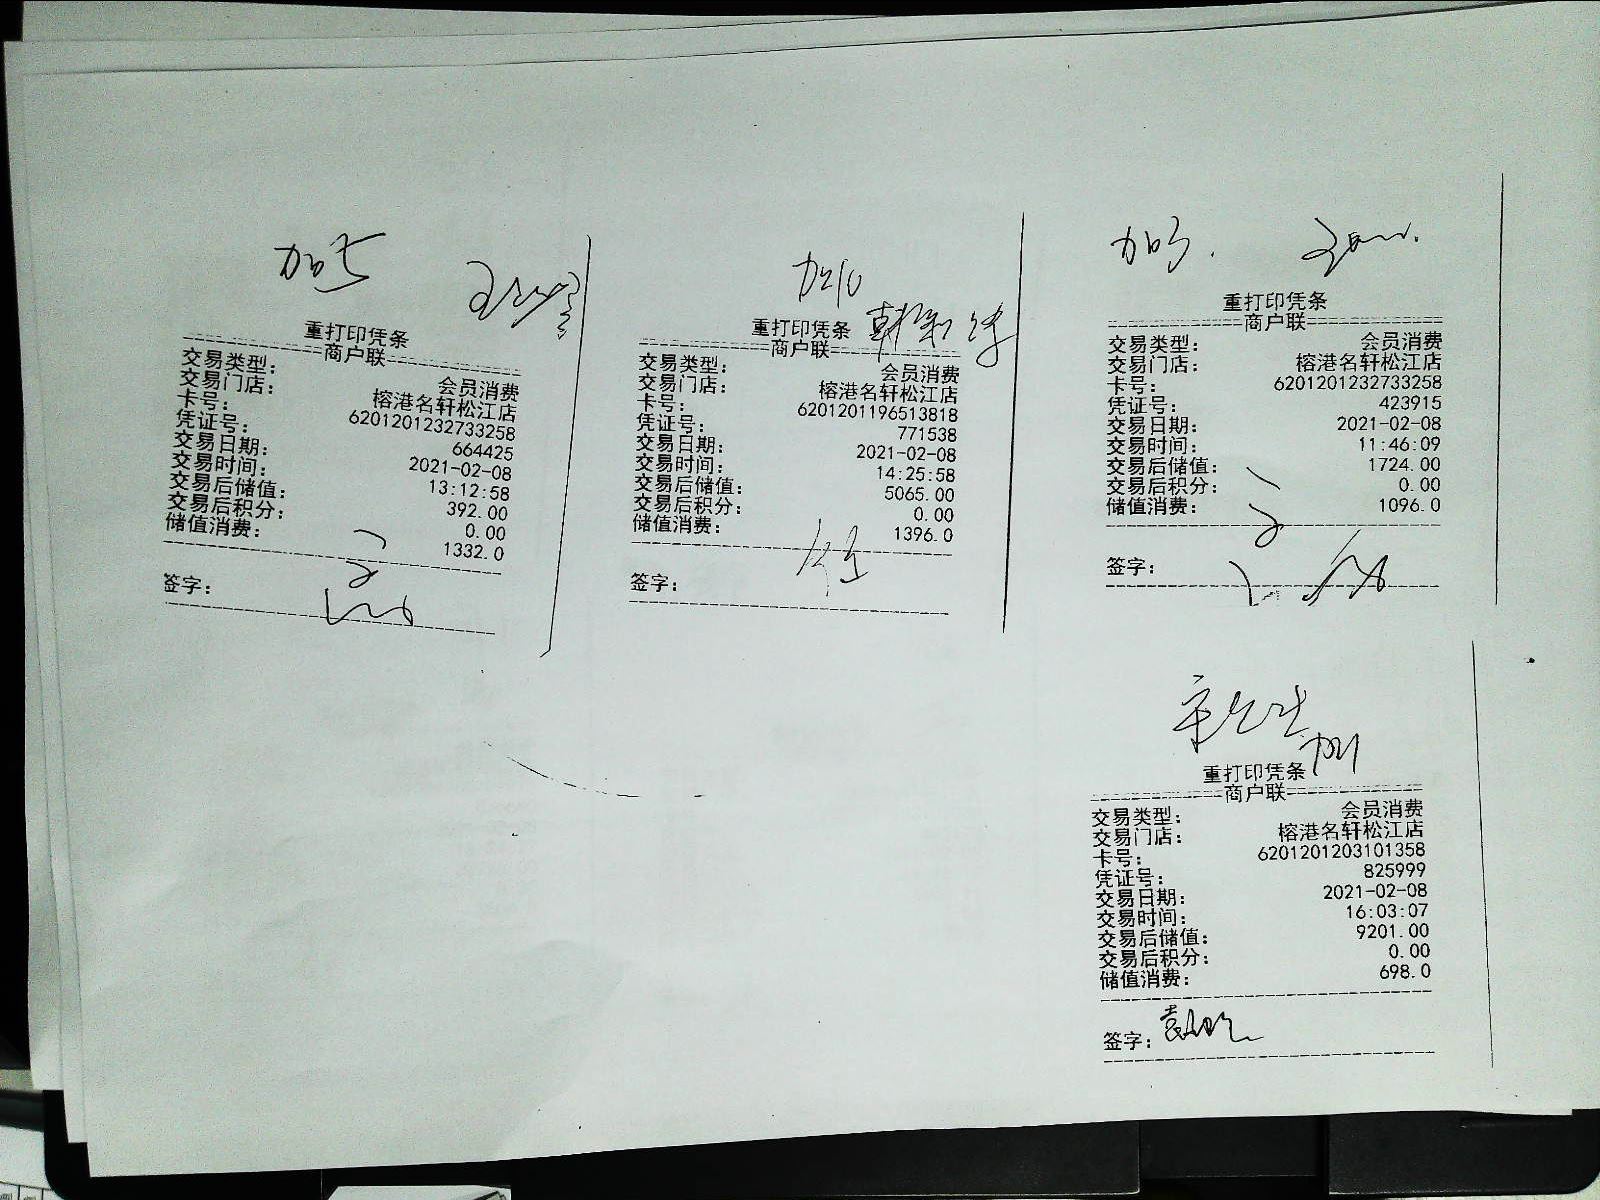 加5
重打印凭条
商户联
交易类型: 会员消费
交易门店: 榕港名轩松江店
卡号: 6201201232733258
凭证号: 664425
交易日期: 2021-02-08
交易时间: 13:12:58
交易后储值: 392.00
交易后积分: 0.00
储值消费: 1332.0
签字:
重打印凭条
商户联
交易类型: 会员消费
交易门店: 榕港名轩松江店
卡号: 6201201196513818
凭证号: 771538
交易日期: 2021-02-08
交易时间: 14:25:58
交易后储值: 5065.00
交易后积分: 0.00
储值消费: 1396.0
签字:
加3.
重打印凭条
商户联
交易类型: 会员消费
交易门店: 榕港名轩松江店
卡号: 6201201232733258
凭证号: 423915
交易日期: 2021-02-08
交易时间: 11:46:09
交易后储值: 1724.00
交易后积分: 0.00
储值消费: 1096.0
签字:
重打印凭条
商户联
交易类型: 会员消费
交易门店: 榕港名轩松江店
卡号: 6201201203101358
凭证号: 825999
交易日期: 2021-02-08
交易时间: 16:03:07
交易后储值: 9201.00
交易后积分: 0.00
储值消费: 698.0
签字: